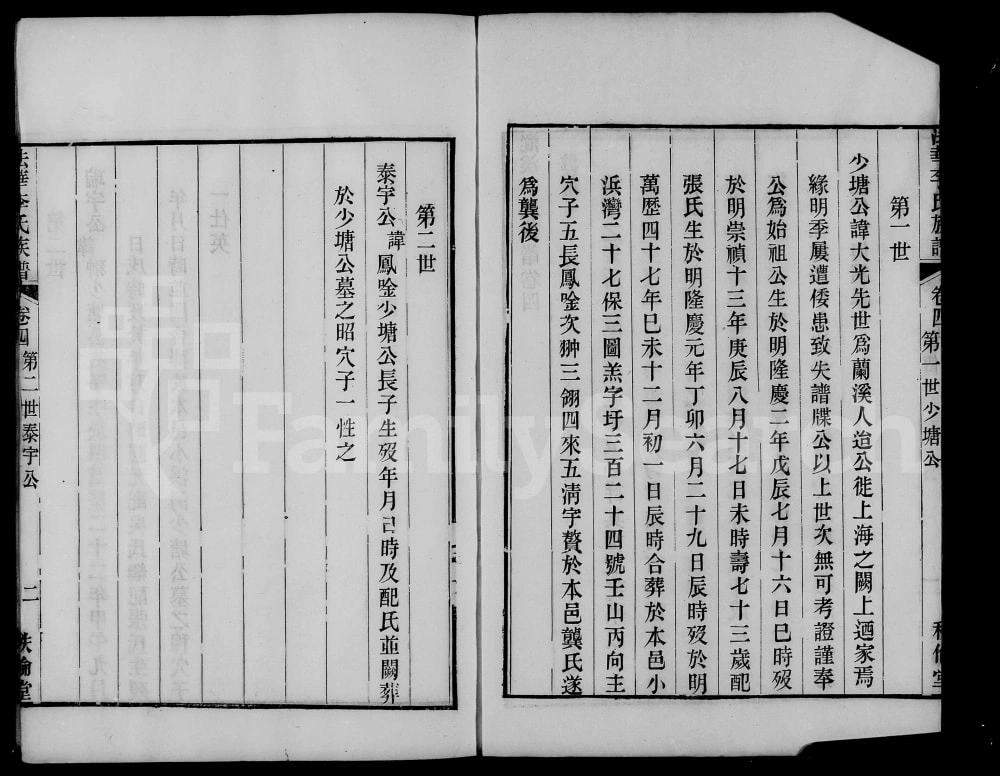 第一世
少塘公諱大光先世爲蘭溪人迨公徙上海之闕上迺家焉
緣明季屢遭倭患致失譜牒公以上世次無可考證謹奉
公爲始祖公生於明隆慶二年戊辰七月十六日巳時歿
於明崇禎十三年庚辰八月十七日未時壽七十三歲配
張氏生於明隆慶元年丁卯六月二十九日辰時歿於明
萬歷四十七年巳未十二月初一日辰時合葬於本邑小
浜灣二十七保三圖羔字圩三百二十四號壬山丙向主
穴子五長鳳唫次翀三翎四來五淸宇贅於本邑龔氏遂
爲龔後
李氏族譜
卷四
第一世少塘公
第二世
泰宇公諱鳳唫少塘公長子生歿年月日時及配氏並闕葬
於少塘公墓之昭穴子一性之
法華李氏族譜
卷四
第二世泰宇公
二
FamilySearch